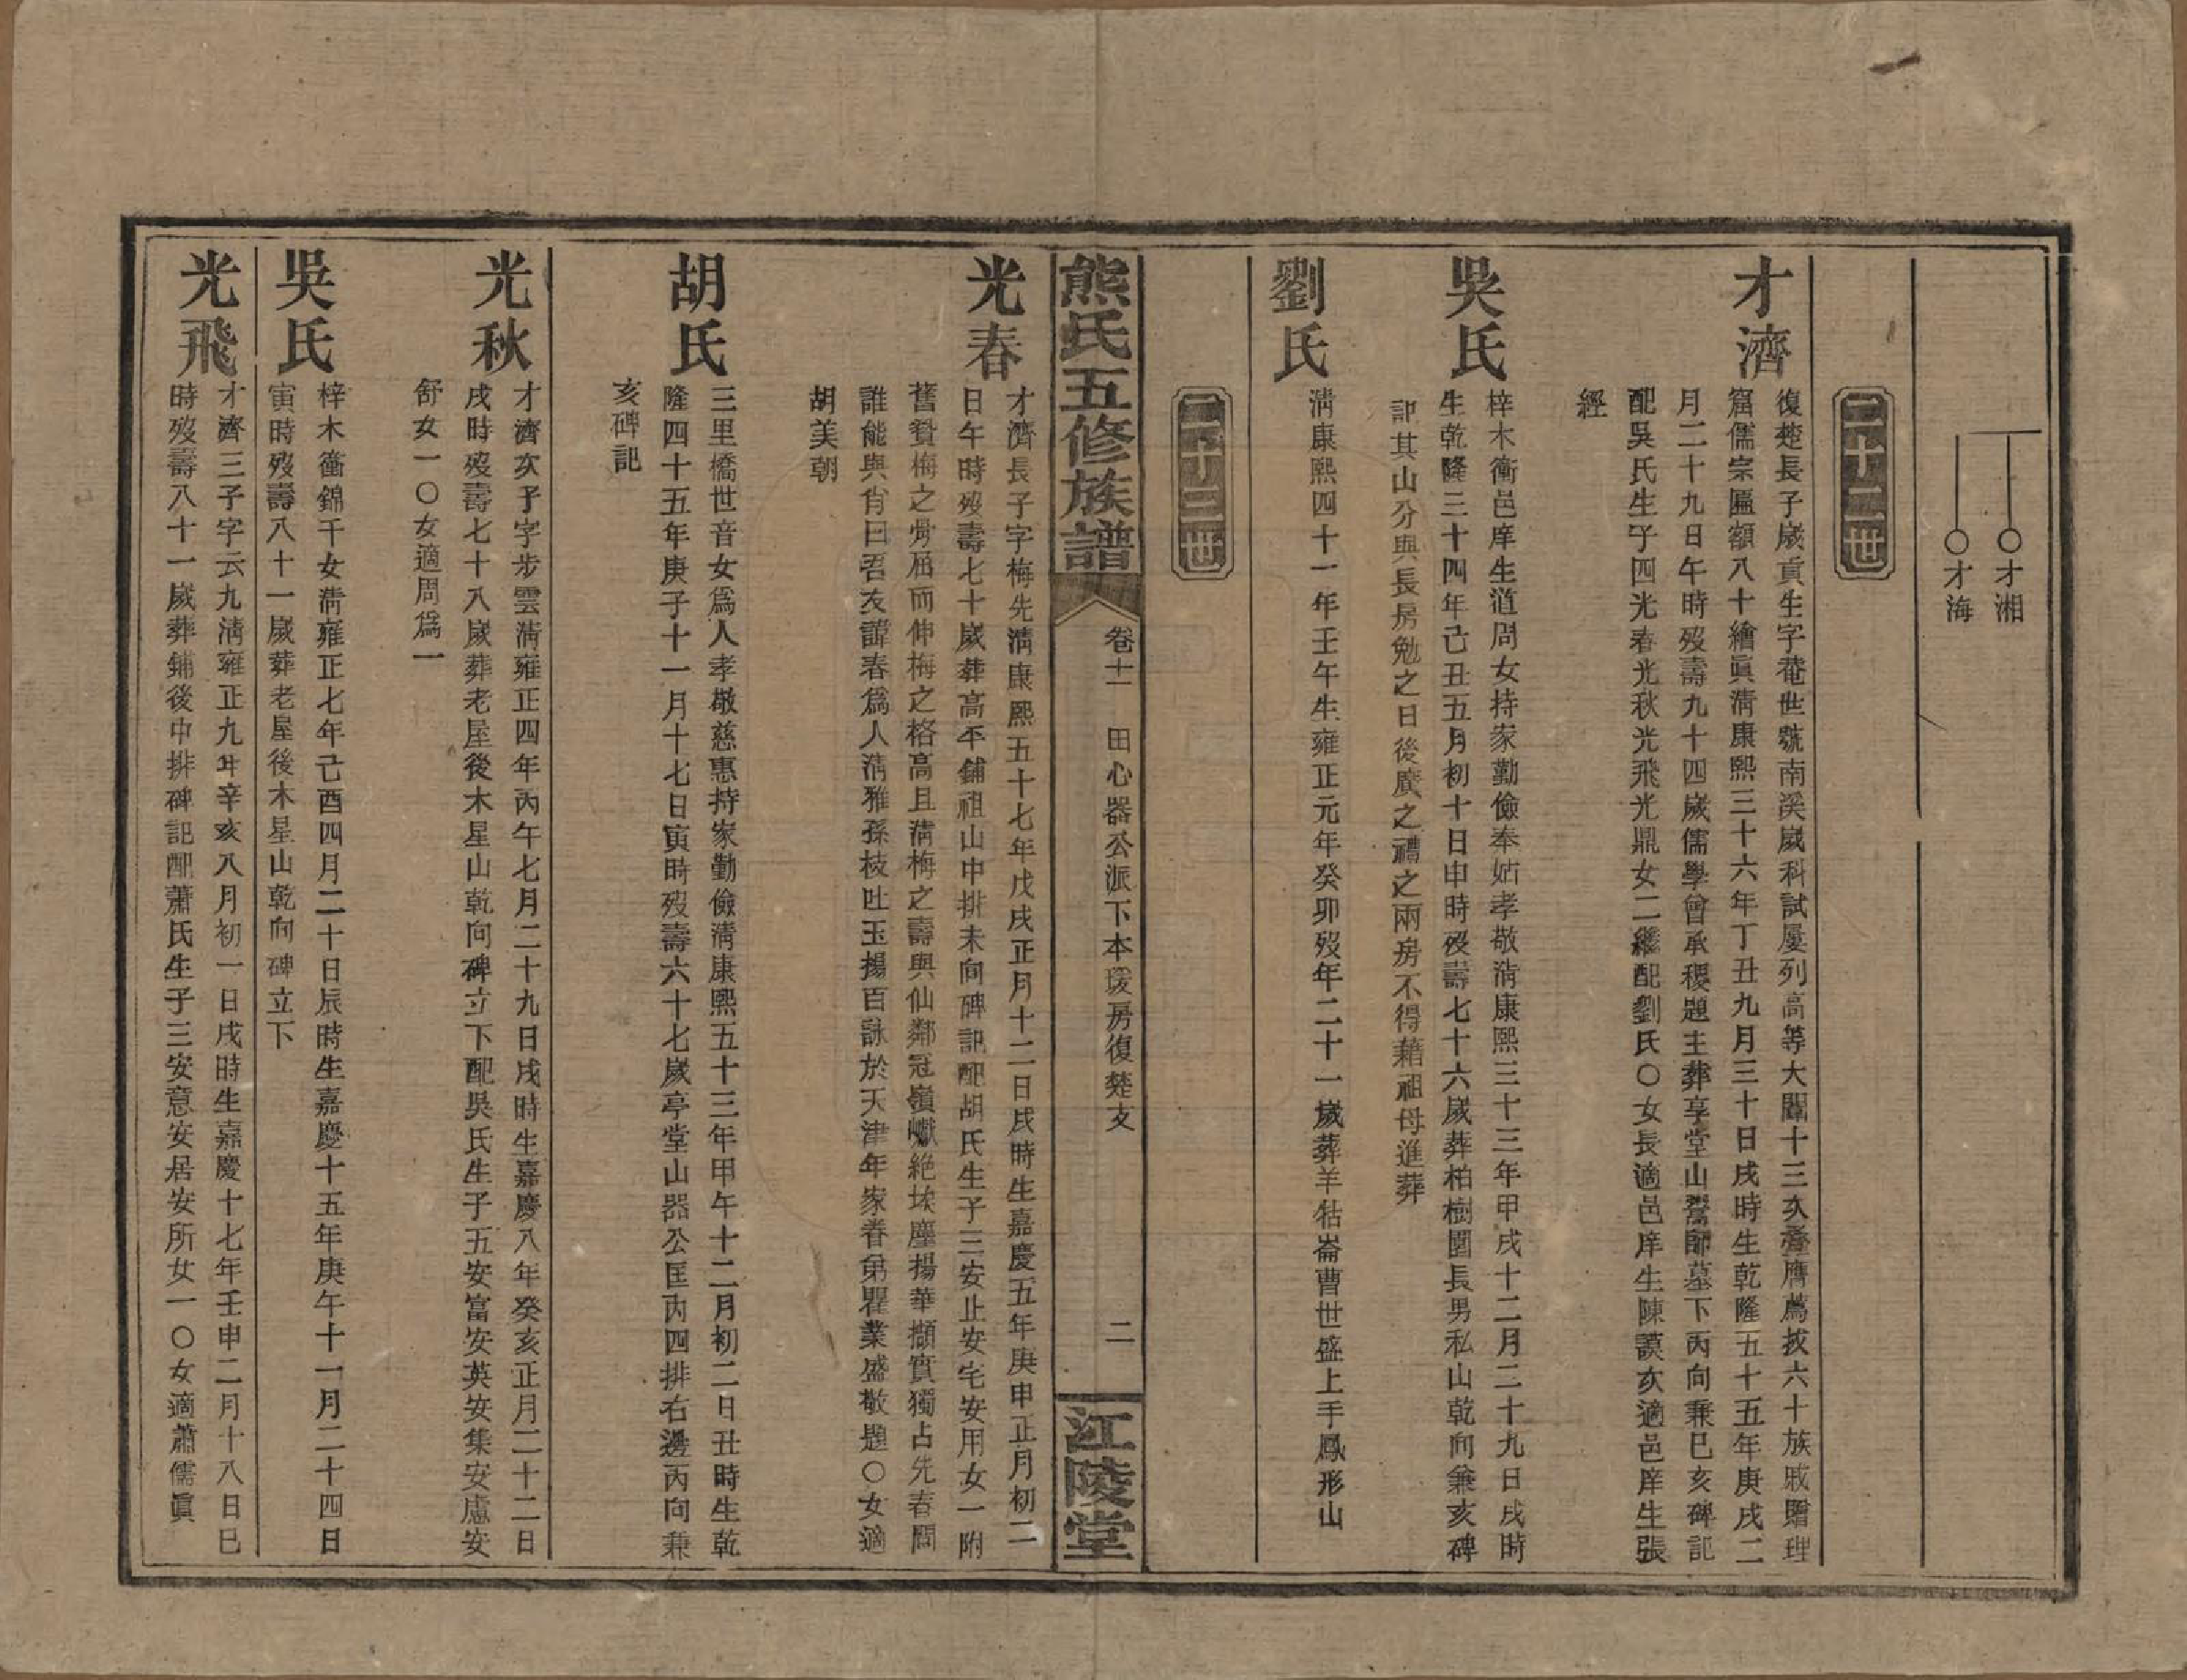 ○才湘
○才海
二十二世
才濟
復楚長子歲貢生字菴世號南溪歲科試屢列高等大闈十三次臺膺薦拔六十族戚贈理
窟儒宗匾額八十繪眞清康熙三十六年丁丑九月三十日戌時生乾隆五十五年庚戌二
月二十九日午時歿壽九十四歲儒學曾承稷題主葬享堂山鸎師墓下丙向兼巳亥碑記
配吳氏生子四光春光秋光飛光鼎女二繼配劉氏○女長適邑庠生陳謨次適邑庠生張
經
吳氏
梓木衝邑庠生道周女持家勤儉奉姑孝敬清康熙三十三年甲戌十二月二十九日戌時
生乾隆三十四年己丑五月初十日申時歿壽七十六歲葬柏樹園長男私山乾向兼亥碑
記其山分與長房勉之日後廣之禮之兩房不得藉祖母進葬
劉氏
清康熙四十一年壬午生雍正元年癸卯歿年二十一歲葬羊牯崙曹世盛上手鳳形山
二十三世
熊氏五修族譜
卷十一　田心器公派下本瑗房復楚支
二
江陵堂
光春
才濟長子字梅先清康熙五十七年戊戌正月十二日戌時生嘉慶五年庚申正月初二
日午時歿壽七十歲葬高平鋪祖山中排未向碑記配胡氏生子三安止安宅安用女一附
舊贊梅之骨屈而伸梅之格高且清梅之壽與仙鄰冠嶺巘絶埃塵揚華擷實獨占先春問
誰能與肖曰君友諱春爲人清雅孫枝吐玉揚百詠於天津年家眷弟瞿業盛敬題○女適
胡美朝
胡氏
三里橋世音女爲人孝敬慈惠持家勤儉清康熙五十三年甲午十二月初二日丑時生乾
隆四十五年庚子十一月十七日寅時歿壽六十七歲亭堂山器公匡內四排右邊丙向兼
亥碑記
光秋
才濟次子字步雲清雍正四年丙午七月二十九日戌時生嘉慶八年癸亥正月二十二日
戌時歿壽七十八歲葬老屋後木星山乾向碑立下配吳氏生子五安富安英安集安廬安
舒女一○女適周爲一
吳氏
梓木衝錦千女清雍正七年己酉四月二十日辰時生嘉慶十五年庚午十一月二十四日
寅時歿壽八十一歲葬老屋後木星山乾向碑立下
光飛
才濟三子字云九清雍正九年辛亥八月初一日戌時生嘉慶十七年壬申二月十八日巳
時歿壽八十一歲葬鋪後中排碑記配蕭氏生子三安意安居安所女一○女適蕭儒眞